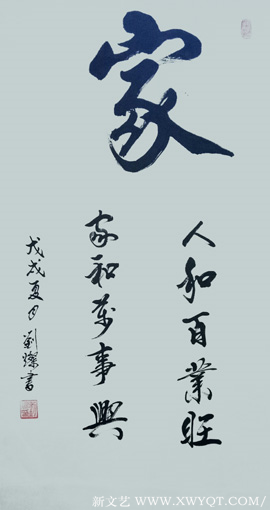 家
人和百業旺
家和萬事興
戊戌夏月劉燦書
新文艺 WWW.XWYQT.COM